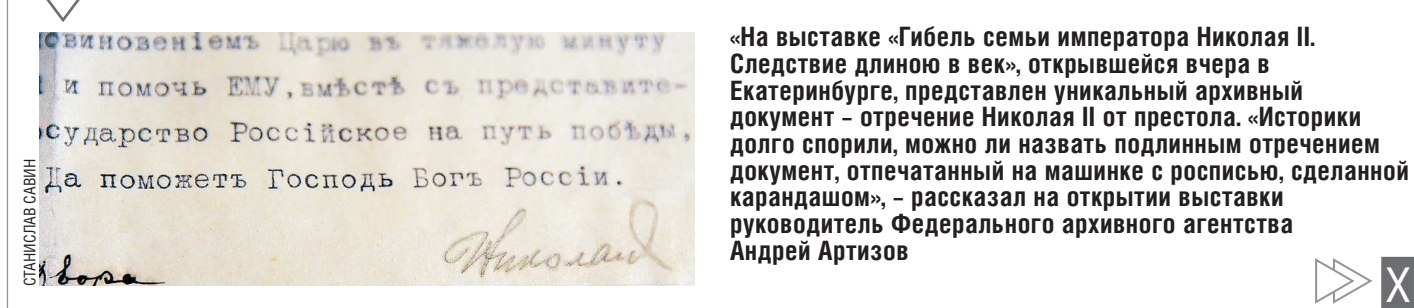 овиновеніемъ Царю въ тяжелую минуту
и помочь ЕМУ, вмѣстѣ съ представите-
осударство Россійское на путь побѣды,
Да поможетъ Господь Богъ Россіи.
Николай
Двора
СТАНИСЛАВ САВИН
«На выставке «Гибель семьи императора Николая II.
Следствие длиною в век», открывшейся вчера в
Екатеринбурге, представлен уникальный архивный
документ – отречение Николая II от престола. «Историки
долго спорили, можно ли назвать подлинным отречением
документ, отпечатанный на машинке с росписью, сделанной
карандашом», – рассказал на открытии выставки
руководитель Федерального архивного агентства
Андрей Артизов
X